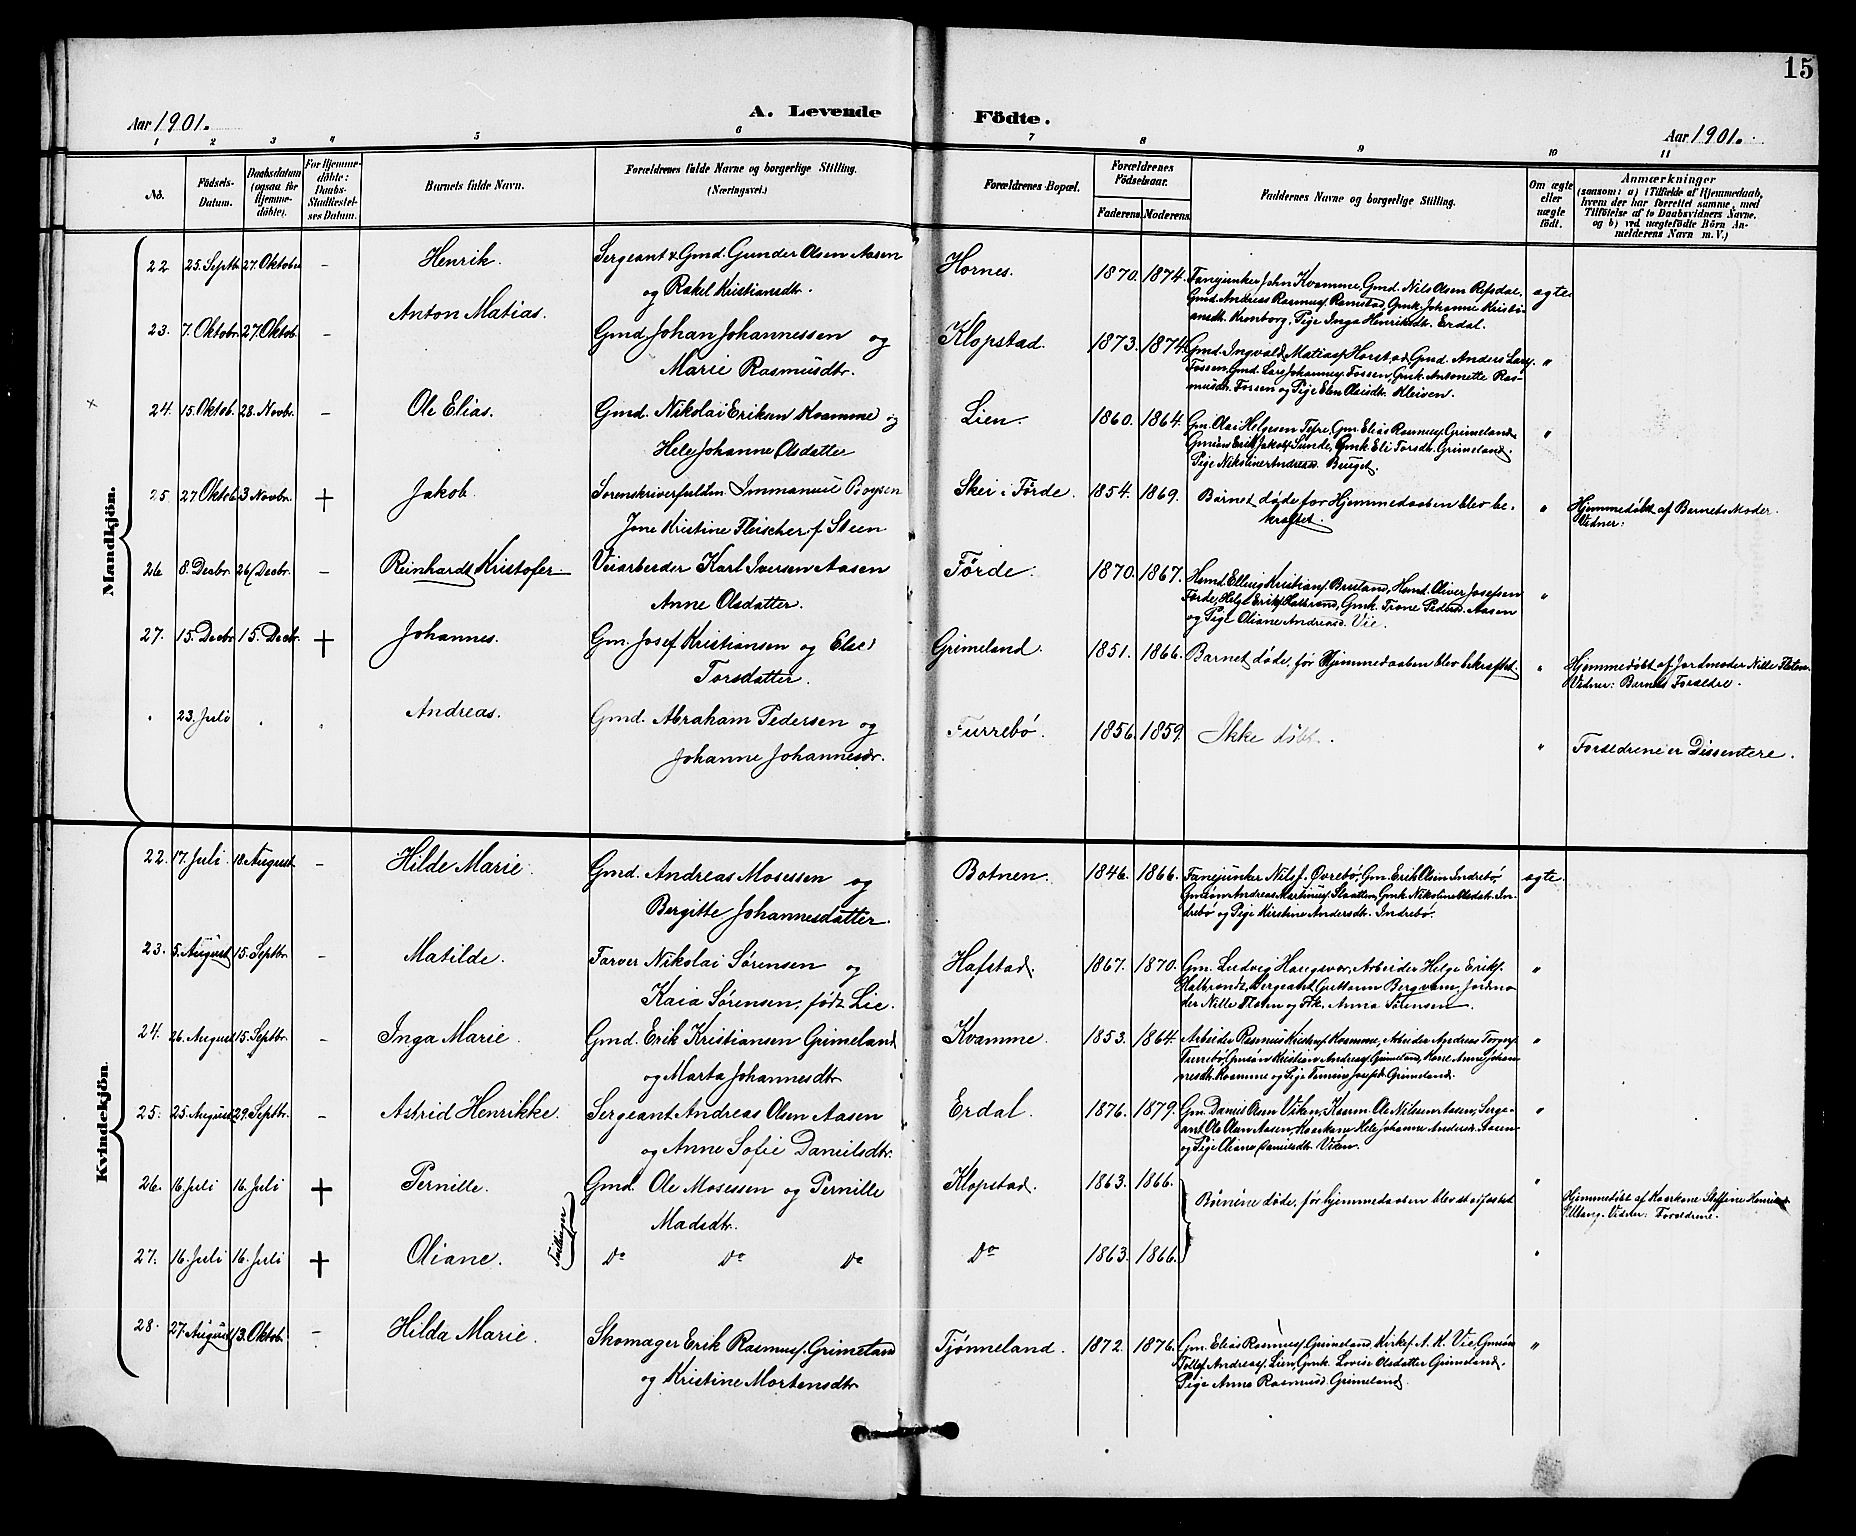 15
A. Levende Födte.
Aar 1901.
Aar 1901.
1 2 3 4 5 6 7 8 9 10 11
No.
Födsels-Datum.
Daabsdatum (ogsaa for Hjemmedöbte).
For Hjemmedöbte: Daabs-Stadfæstelses Datum.
Barnets fulde Navn.
Forældrenes fulde Navne og borgerlige Stilling. (Næringsvei.)
Forældrenes Bopæl.
Forældrenes Födselsaar.
Faderens. Moderens.
Faddernes Navne og borgerlige Stilling.
Om ægte eller uægte födt.
Anmærkninger
(saasom: a) i Tilfælde af Hjemmedaab, hvem der har forrettet samme, med Tilföielse af to Daabsvidners Navne. og b) ved uægtefödte Börn Anmelderens Navn m. V.)
Mandkjön.
22 25. Septbr 27. Oktober – Henrik. Sergeant & Gmd. Gunder Olsen Aasen
og Rakel Kristiansdtr. Hornes. 1870. 1874. Fanejunker John Kvamme, Gmd. Nils Olsen Refsdal,
Gmd. Andreas Rasmusf. Ramstad, Gmk. Johanne Kristi-
ansdt. Kronborg, Pige Inga Henriksdt. Erdal. ægte
23. 7. Oktobr. 27 Oktob. – Anton Matias. Gmd. Johan Johannessen og
Marie Rasmusdtr. Klopstad. 1873. 1874. Gmd. Ingvald Matiasf Horstad, Gmd. Anders Larsf.
Fossen, Gmd. Lars Johannesf Fossen, Gmk. Antonette Ras-
musdt. Fossen og Pige Elen Olaisdt. Kleiven. "
24. 15. Oktob. 28. Novbr. – Ole Elias. Gmd. Nikolai Eriksen Kvamme og
Hele Johanne Olsdatter Lien. 1860. 1864. Gm. Olai Helgesen Tefre, Gm. Elias Rasmusf. Grimeland,
Gmsøn Erik Jakobf Sunde, Gmk. Eli Torsdt. Grimeland.
Pige Nikoline Andreasd. Bruget. "
25 27 Oktob 3 Novbr. + Jakob. Sorenskriverfuldm. Immanuel Boysen
Jone Kristine Fleischer f. Steen Skei i Førde. 1854. 1869. Barnet døde før Hjemmedaaben blev be-
kræftet. " Hjemmedøbt af Barnets Moder.
Vidner:
26 8. Decbr 26 Decbr. – Reinhardt Kristofer Veiarbeider Karl Iversen Aasen
Anne Olsdatter. Førde. 1870. 1867. Hsmd. Ellevig Kristiansf. Brusland, Hsmd. Oliver Josefsen
Førde, Helge Eriksf Halbrend, Gmk. Tione Pedersd. Aasen
og Pige Oliane Andreasd. Vie. "
27. 15. Decbr. 15. Decbr. + Johannes. Gm. Josef Kristiansen og Else
Torsdatter. Grimeland. 1851. 1866. Barnet døde, før Hjemmedaaben blev bekræftet " Hjemmedøbt af Jordmoder Nille Flaten.
Vidner: Barnets Forældre.
" 23. Juli " " Andreas. Gmd. Abraham Pedersen og
Johanne Johannesdr. Furrebø. 1856. 1859. Ikke døbt. " Forældrene er Dissentere.
Kvindekjön.
22. 17. Juli 18. August – Hilde Marie. Gmd. Andreas Mosessen og
Bergitte Johannesdatter. Botnen. 1846. 1866. Fanejunker Nils J. Øvrebø, Gm. Erik Olsen Indrebø
Gmsøn Andreas Martinusf. Slaatten, Gmk. Nikoline Olsdat. In-
drebø og Pige Kirstine Andersdt. Indrebø. ægte.
23. 5. August 15. Septbr. – Matilde. Farver Nikolai Sørensen og
Kaia Sørensen, født Lie. Hafstad. 1867. 1870. Gm. Ludvig Haugsvær, Arbeider Helge Eriks.
Halbrendt, Sergeant Guttorm Bergum, Jordmo-
der Nille Flaten og Frk. Anna Sørensen. "
24. 26. August 15. Septbr. – Inga Marie. Gmd. Erik Kristiansen Grimeland
og Marta Johannesdtr Kvamme. 1853. 1864. Arbeider Rasmus Kristenf Kvamme, Arbeider Andreas
Furrebø, Gmsøn Kristian Andreasf Grimeland, Kone Anne Johan-
nesdt. Kvamme og Pige Josefsd. Grimeland. "
25. 25. August 29. Septbr. – Astrid Henrikke. Sergeant Andreas Olsen Aasen
og Anne Sofie Danielsdtr. Erdal. 1876. 1879. Gm. Daniel Olsen Viken, Kaarm. Ole Nilssen Aasen, Serge-
ant Ole Olsen Aasen, Kaarkone Hele Johanne Andersd. Aasen
og Pige Oliane Danielsdtr. Viken. "
26. 16 Juli 16. Juli + Pernille. Gmd. Ole Mosessen og Pernille
Madsdtr. Klopstad. 1863. 1866. Børnene døde, før hjemmedaaben blev stadfæstet " Hjemmedøbt af Kaarkone Steffine Henriksd.
Ullaug. Vidner: Forældrene.
Tvillinger
27. 16. Juli 16. Juli + Oliane. Do Do Do Do 1863. 1866. "
28. 27. August 13. Oktob. – Hilda Marie. Skomager Erik Rasmusf. Grimeland
og Kristine Mortensdtr Tjønneland. 1872. 1876. Gm. Elias Rasmusf. Grimeland, Kirkes. A. K. Vie, Gmsøn
Tollef Andreasf. Lien, Gmk. Lovise Olsdatter Grimeland.
Pige Anna Rasmusd. Grimeland. "